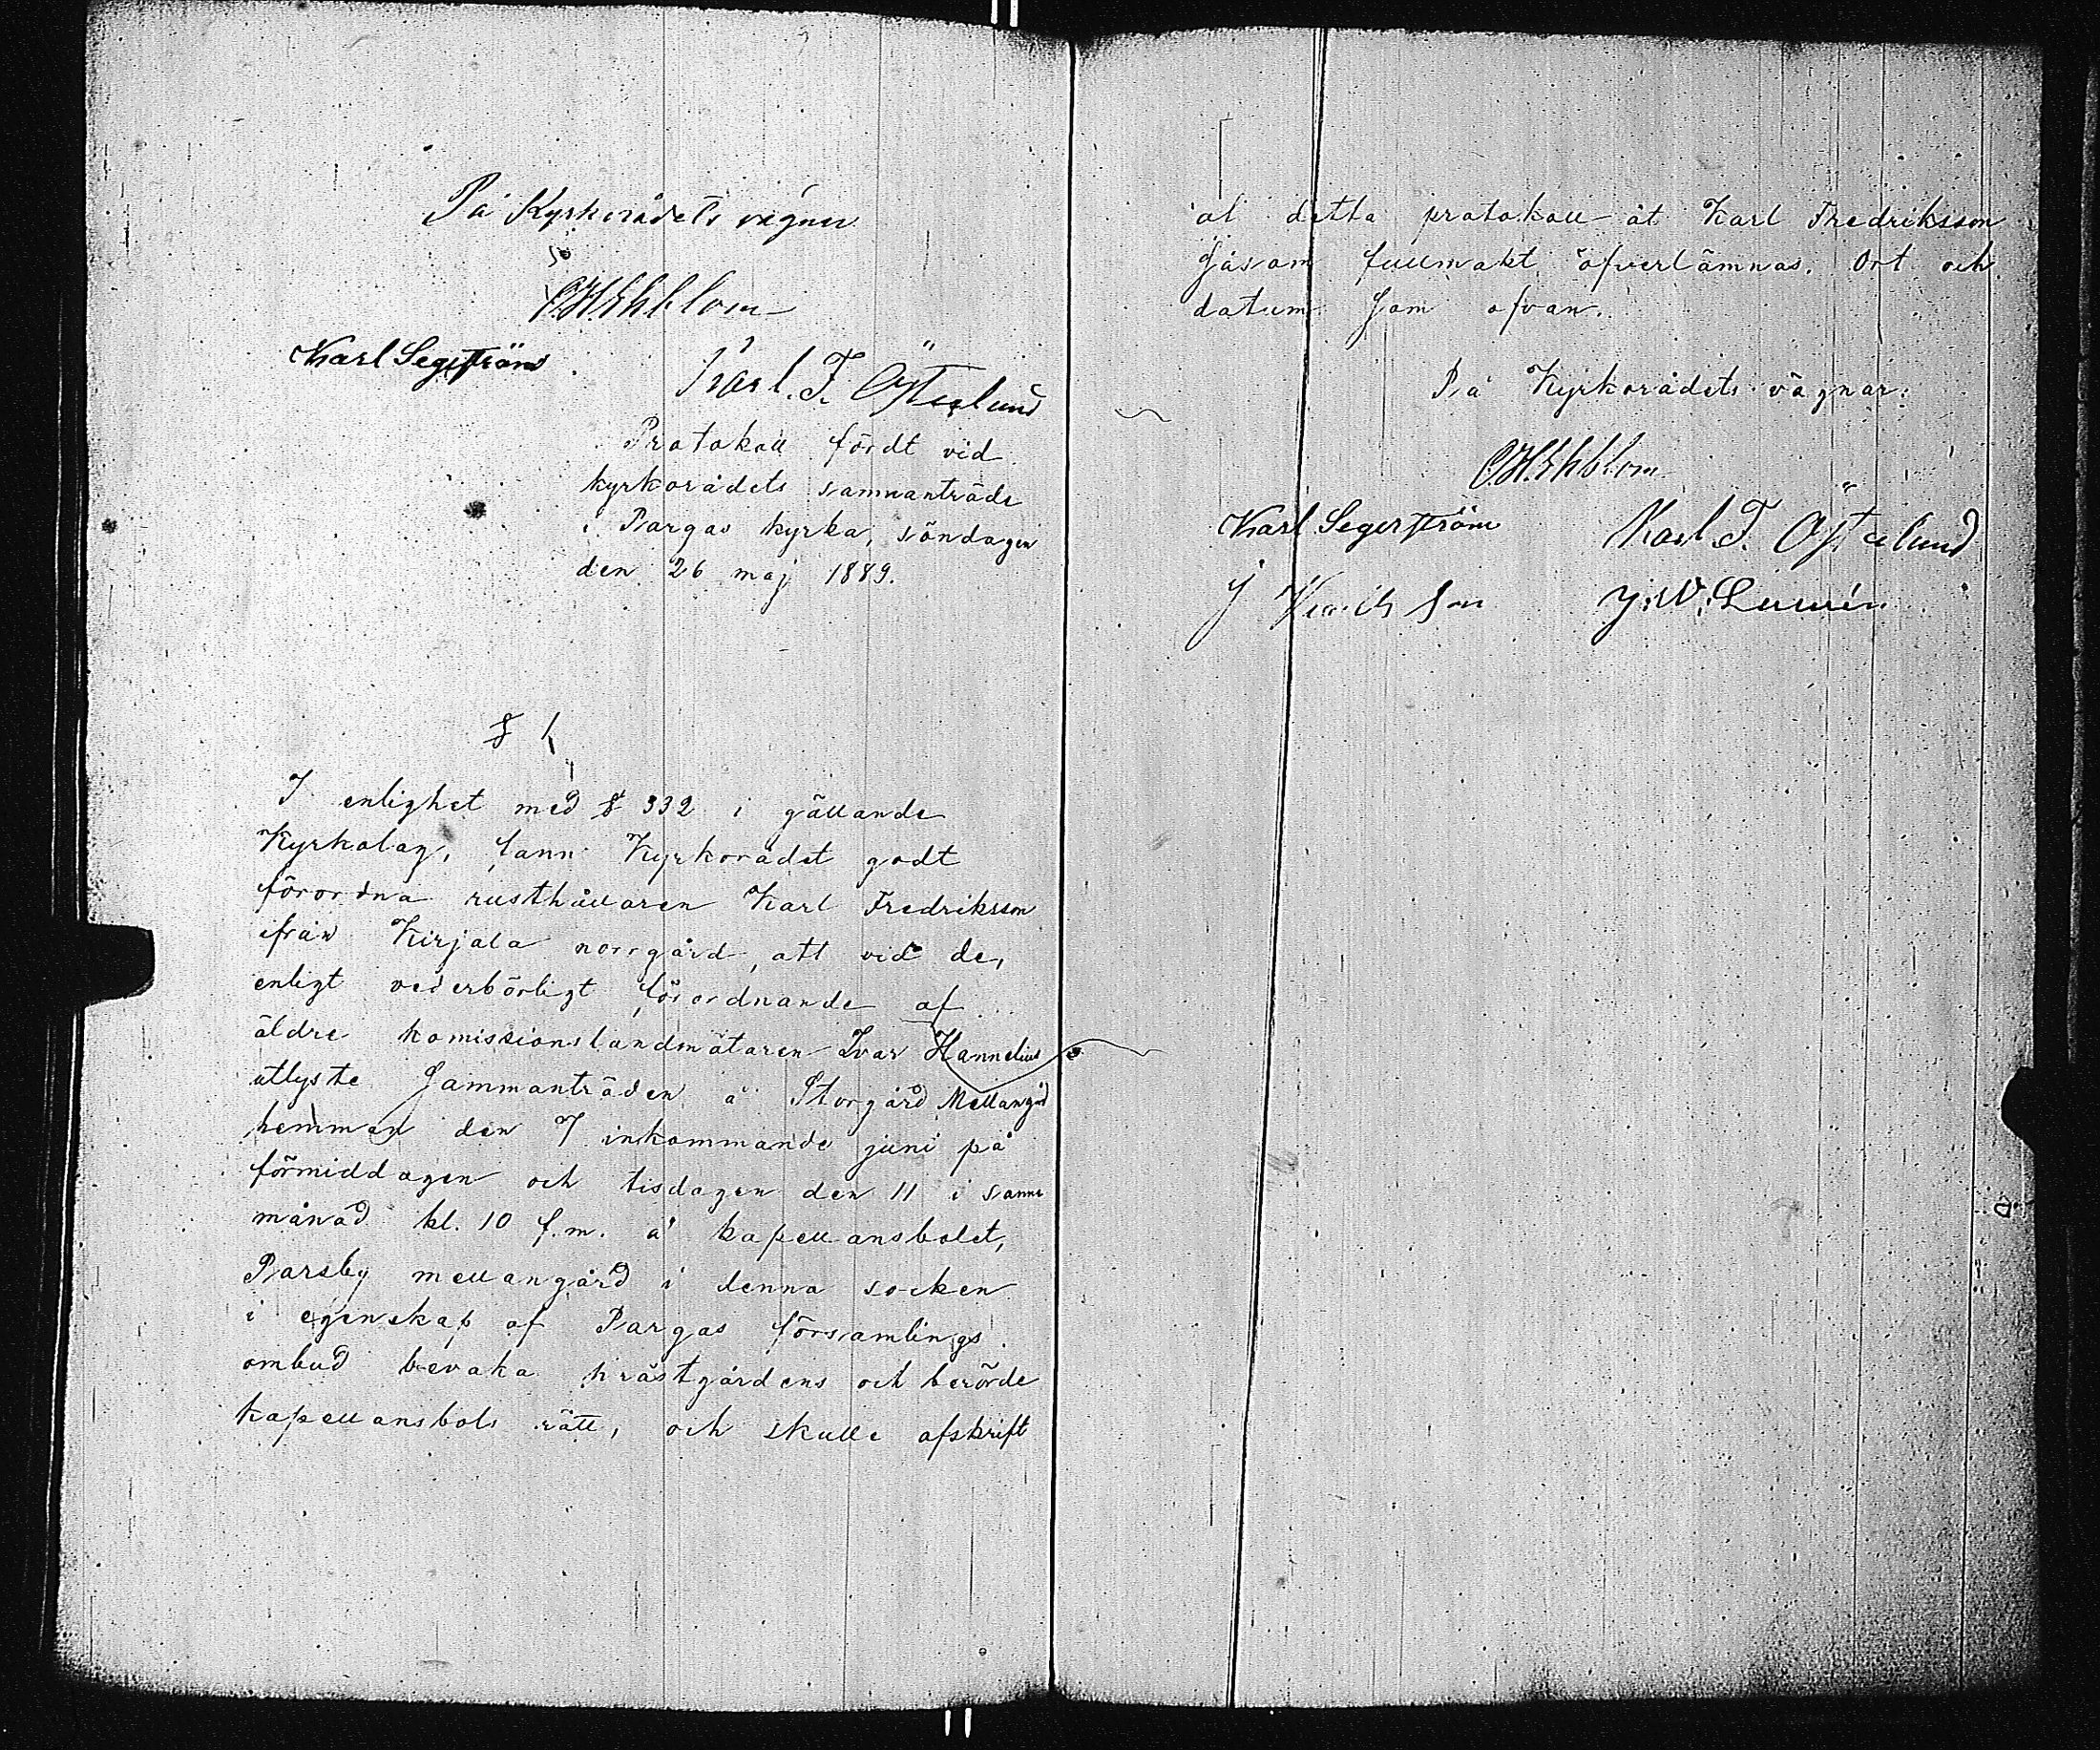 På Kyrkorådets vägnar
C.H. Ekblom
Karl Segerström
Karl. F. Österlund
Protokoll fördt vid
kyrkorådets sammanträde
i Pargas kyrka, söndagen
den 26 maj 1889.
§ 1
I enlighet med § 332 i gällande
Kyrkolag, fann Kyrkorådet godt
förordna rusthållaren Karl Fredriksson
ifrån Kirjala norrgård, att vid de,
enligt vederbörligt förordnande af
äldre komissionslandmätaren Ivar Hannelius
utlyste Sammanträden å Storgård Mellangård
hemman den 7 inkommande juni på
förmiddagen och tisdagen den 11 i samme
månad kl. 10 f.m. å kapellansbolet,
Parsby mellangård i denna socken
i egenskap af Pargas församlings
ombud bevaka prästgårdens och berörde
kapellansbols rätt, och skulle afskrift
af detta protokoll åt Karl Fredriksson
Såsom fullmakt öfverlämnas. Ort och
datum Som ofvan.
På Kyrkorådets vägnar:
C.H. Ekblom
Karl Segerström Karl F. Österlund
J J. W.